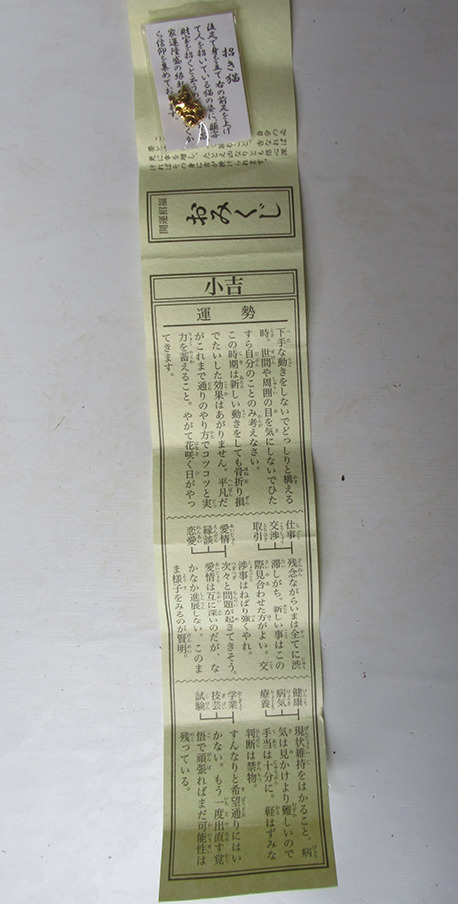 招き猫
後足で身を立て右の前足を上げ
て人を招いている猫の姿に、顧客
財宝を招くと
家運隆盛の縁
ら信仰を集めて
開運招福
おみくじ
小吉
運勢
下手な動きをしないでどっしりと構える
時。世間や周囲の目を気にしないでひた
すら自分のことのみ考えなさい。
この時期は新しい動きをしても骨折り損
でたいした効果はあがりません。平凡だ
がこれまで通りのやり方でコツコツと実
力を蓄えること。やがて花咲く日がやっ
てきます。
仕事
交渉
取引
残念ながらいまは全てに渋
滞しがち。新しい事はこの
際見合わせた方がよい。交
渉事はねばり強くやれ。
愛情
縁談
恋愛
次々と問題が起きてきそう。
愛情は互に深いのだが、な
かなか進展しない。このま
ま様子をみるのが賢明。
健康
病気
療養
現状維持をはかること。病
気は見かけより難しいので
手当は十分に。軽はずみな
判断は禁物。
学業
技芸
試験
すんなりと希望通りにはい
かない。もう一度出直す覚
悟で頑張ればまだ可能性は
残っている。